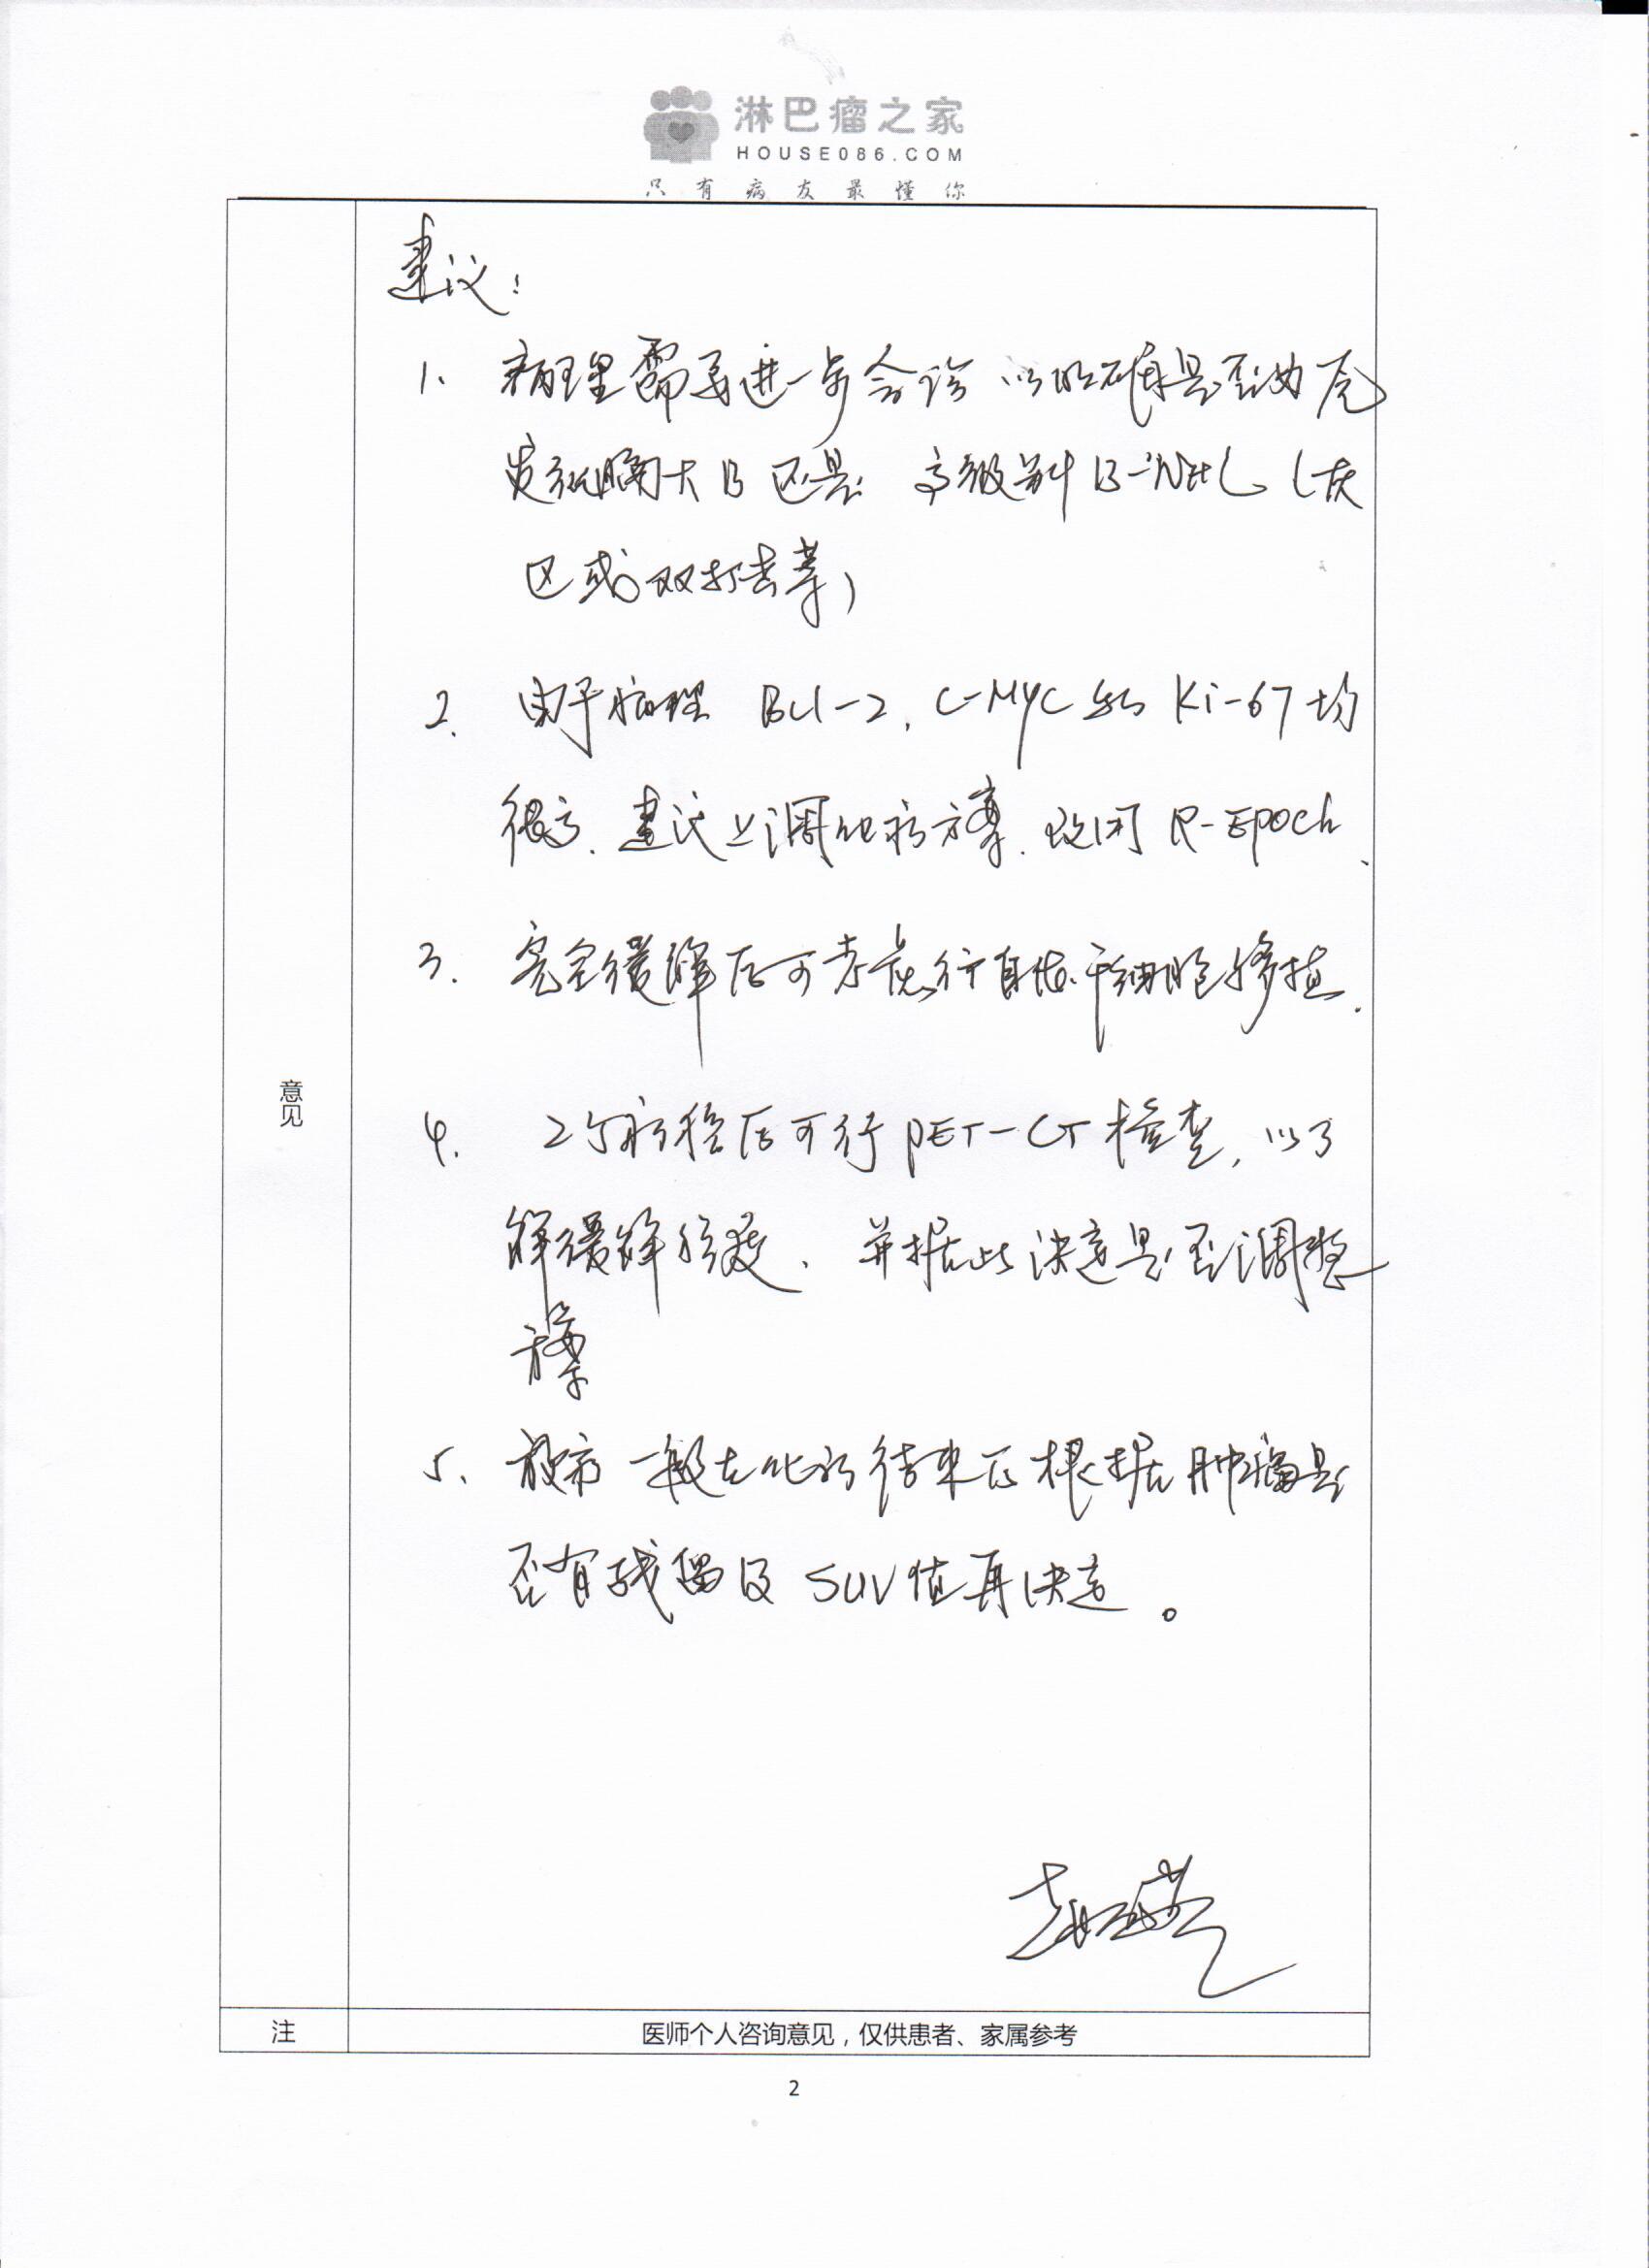 淋巴瘤之家
HOUSE086.COM
只有病友最懂你
建议:
1、病理需要进一步会诊 以明确是否为原
发纵膈大B 还是 高级别B-NHL (灰
区或双打击等)
2. 由于病理 Bcl-2, C-MYC 和 Ki-67均
很高, 建议上调化疗方案, 改用 R-EPOCH、
3. 完全缓解后可考虑行自体干细胞移植.
4. 2疗程后可行PET-CT检查, 以了
解缓解程度, 并据此决定是否调整
方案
5、放疗一般在化疗结束后根据肿瘤是
否有残留及SUV值再决定。
意见
注
医师个人咨询意见，仅供患者、家属参考
2